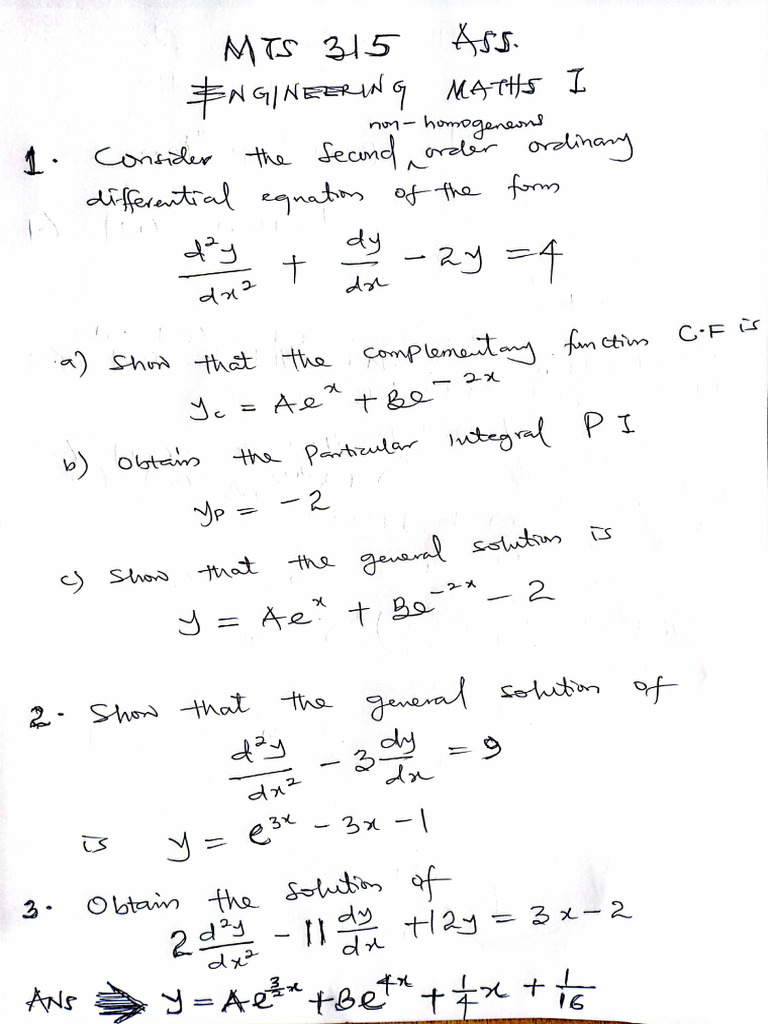 MTS 315 Ass.
ENGINEERING MATHS I
non-homogeneous
1. Consider the second ^ order ordinary
differential equation of the form
d²y/dx² + dy/dx - 2y = 4
a) Show that the complementary function C.F is
y_c = Ae^x + Be^{-2x}
b) Obtain the Particular Integral P I
y_P = -2
c) Show that the general solution is
y = Ae^x + Be^{-2x} - 2
2. Show that the general solution of
d²y/dx² - 3 dy/dx = 9
is y = e^{3x} - 3x - 1
3. Obtain the solution of
2 d²y/dx² - 11 dy/dx + 12y = 3x - 2
ANS ⇒ y = Ae^{3/2 x} + Be^{4x} + 1/4 x + 1/16